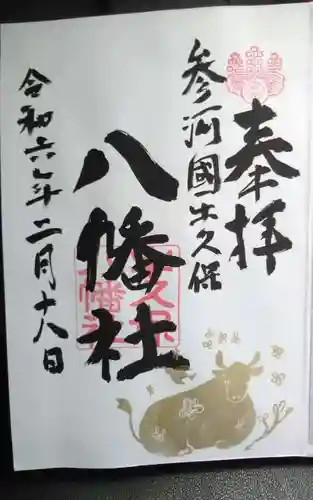 奉拝
参河國牛久保
八幡社
令和六年二月十八日
牛久保
八幡社